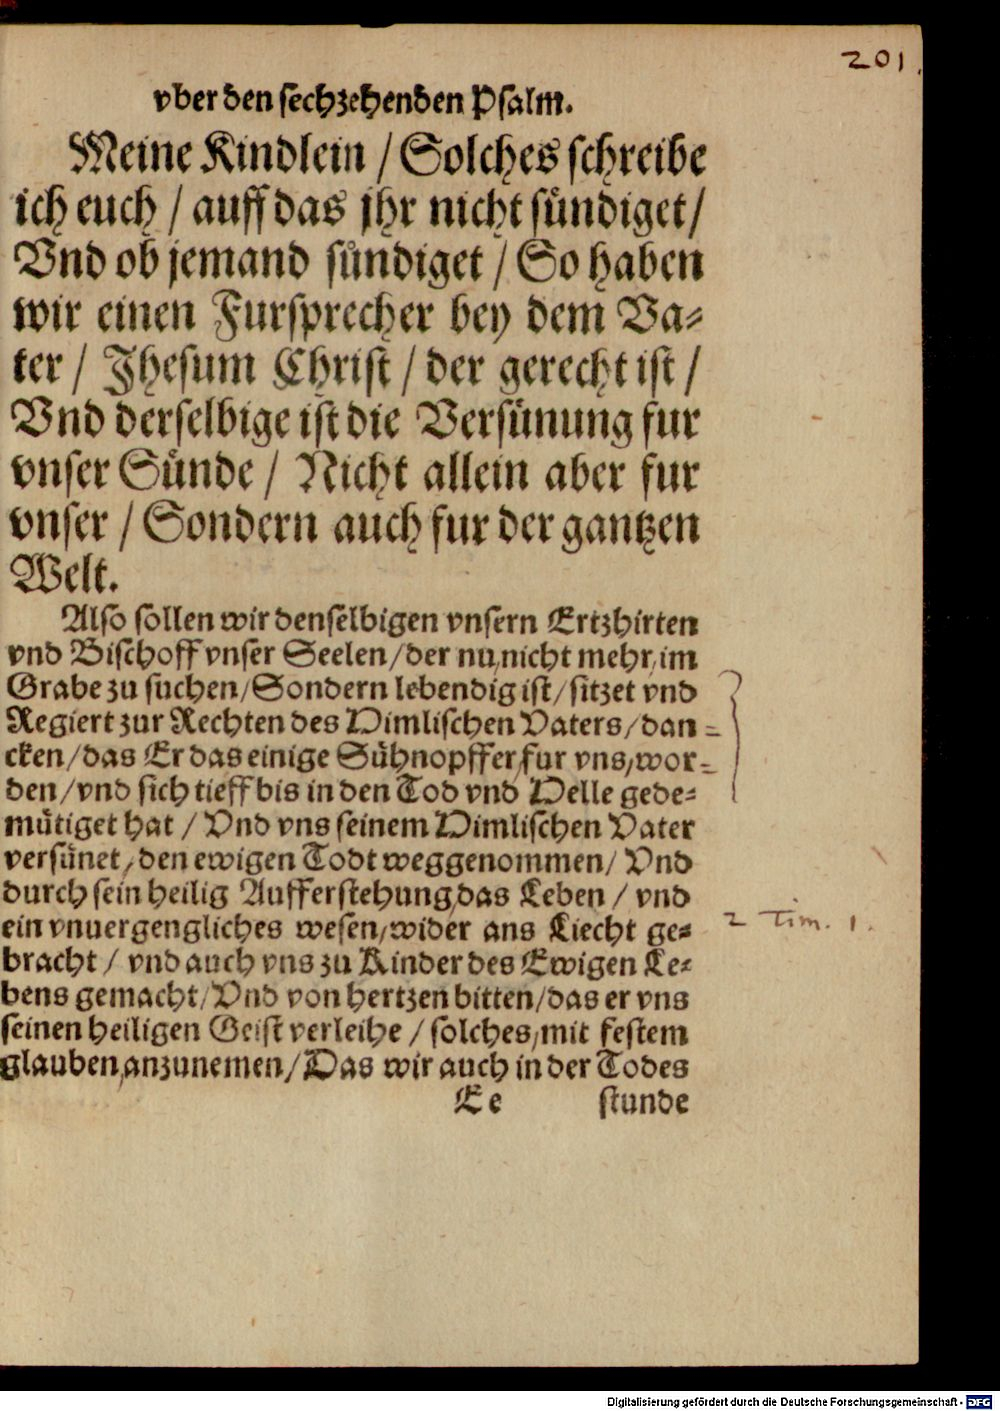 201.
vber den sechzehenden Psalm.
Meine Kindlein / Solches schreibe
ich euch / auff das jhr nicht sündiget /
Vnd ob jemand sündiget / So haben
wir einen Fursprecher bey dem Va-
ter / Jhesum Christ / der gerecht ist /
Vnd derselbige ist die Versünung fur
vnser Sünde / Nicht allein aber fur
vnser / Sondern auch fur der gantzen
Welt.
Also sollen wir denselbigen vnsern Ertzhirten
vnd Bischoff vnser Seelen / der nu nicht mehr, im
Grabe zu suchen / Sondern lebendig ist / sitzet vnd
Regiert zur Rechten des Himlischen Vaters / dan=
cken / das Er das einige Sühnopffer, fur vns, wor=
den / vnd sich tieff bis in den Tod vnd Helle gede-
mütiget hat / Vnd vns seinem Himlischen Vater
versünet, den ewigen Todt weggenommen / Vnd
durch sein heilig Aufferstehung, das Leben / vnd
ein vnuergengliches wesen, wider ans Liecht ge-
2 Tim. 1.
bracht / vnd auch vns zu Kinder des Ewigen Le-
bens gemacht / Vnd von hertzen bitten / das er vns
seinen heiligen Geist verleihe / solches, mit festem
glauben, anzunemen / Das wir auch in der Todes
Ee stunde
Digitalisierung gefördert durch die Deutsche Forschungsgemeinschaft - DFG